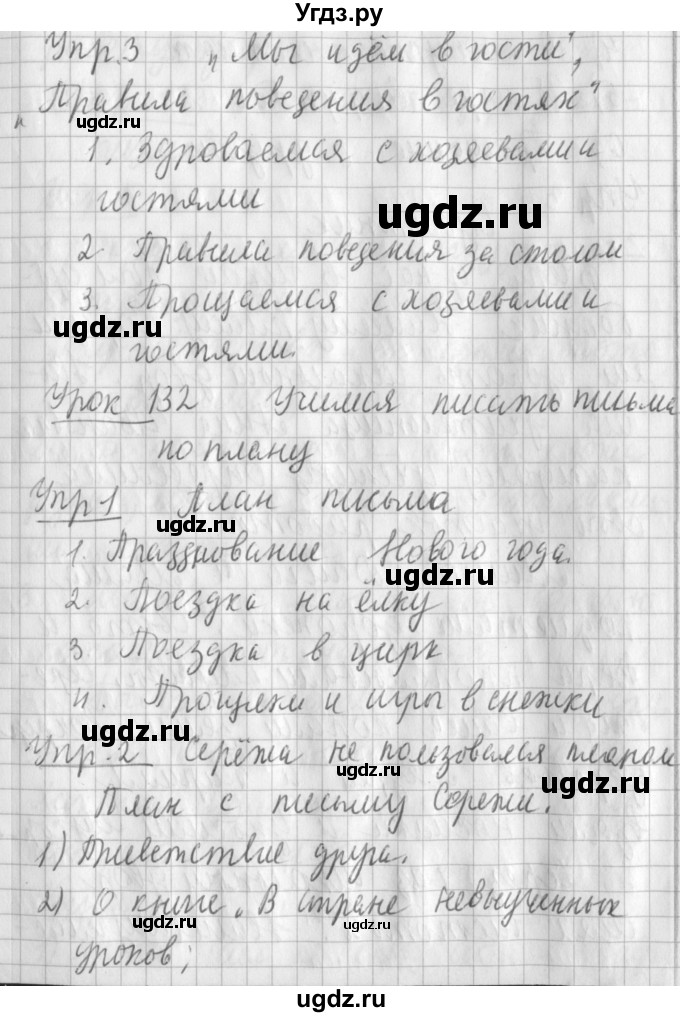 Угдз.ру
Упр.3 „Мы идём в гости",
„Правила поведения в гостях"
ugdz.ru
1. Здороваемся с хозяевами и
гостями
ugdz.ru
2 Правила поведения за столом
ugdz.ru
3. Прощаемся с хозяевами и
ugdz.ru
гостями.
Урок 132 Учимся писать письма
по плану
ugdz.ru
Упр 1 План письма
ugdz.ru
1. Празднование Нового года.
ugdz.ru
2. Поездка на ёлку
3 Поездка в цирк
4. Прогулки и игры в снежки
ugdz.ru
Упр.2 Серёжа не пользовался планом
ugdz.ru
ugdz.ru
План с письму Сережи.
1) Приветствие друга.
2) О книге „В стране невыученных
ugdz.ru
ugdz.ru
уроков;
ugdz.ru